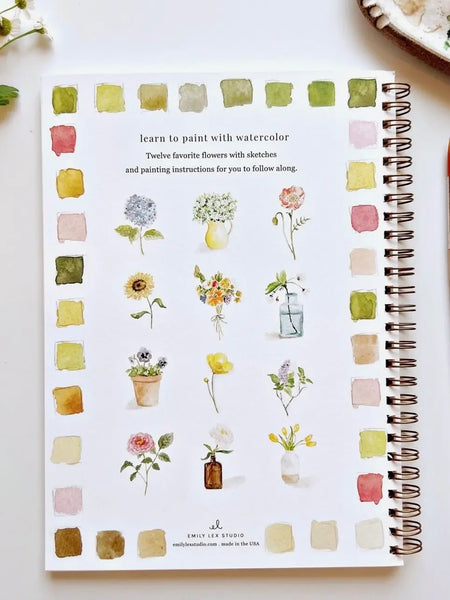 learn to paint with watercolor
Twelve favorite flowers with sketches
and painting instructions for you to follow along.
el
EMILY LEX STUDIO
emilylexstudio.com . made in the USA